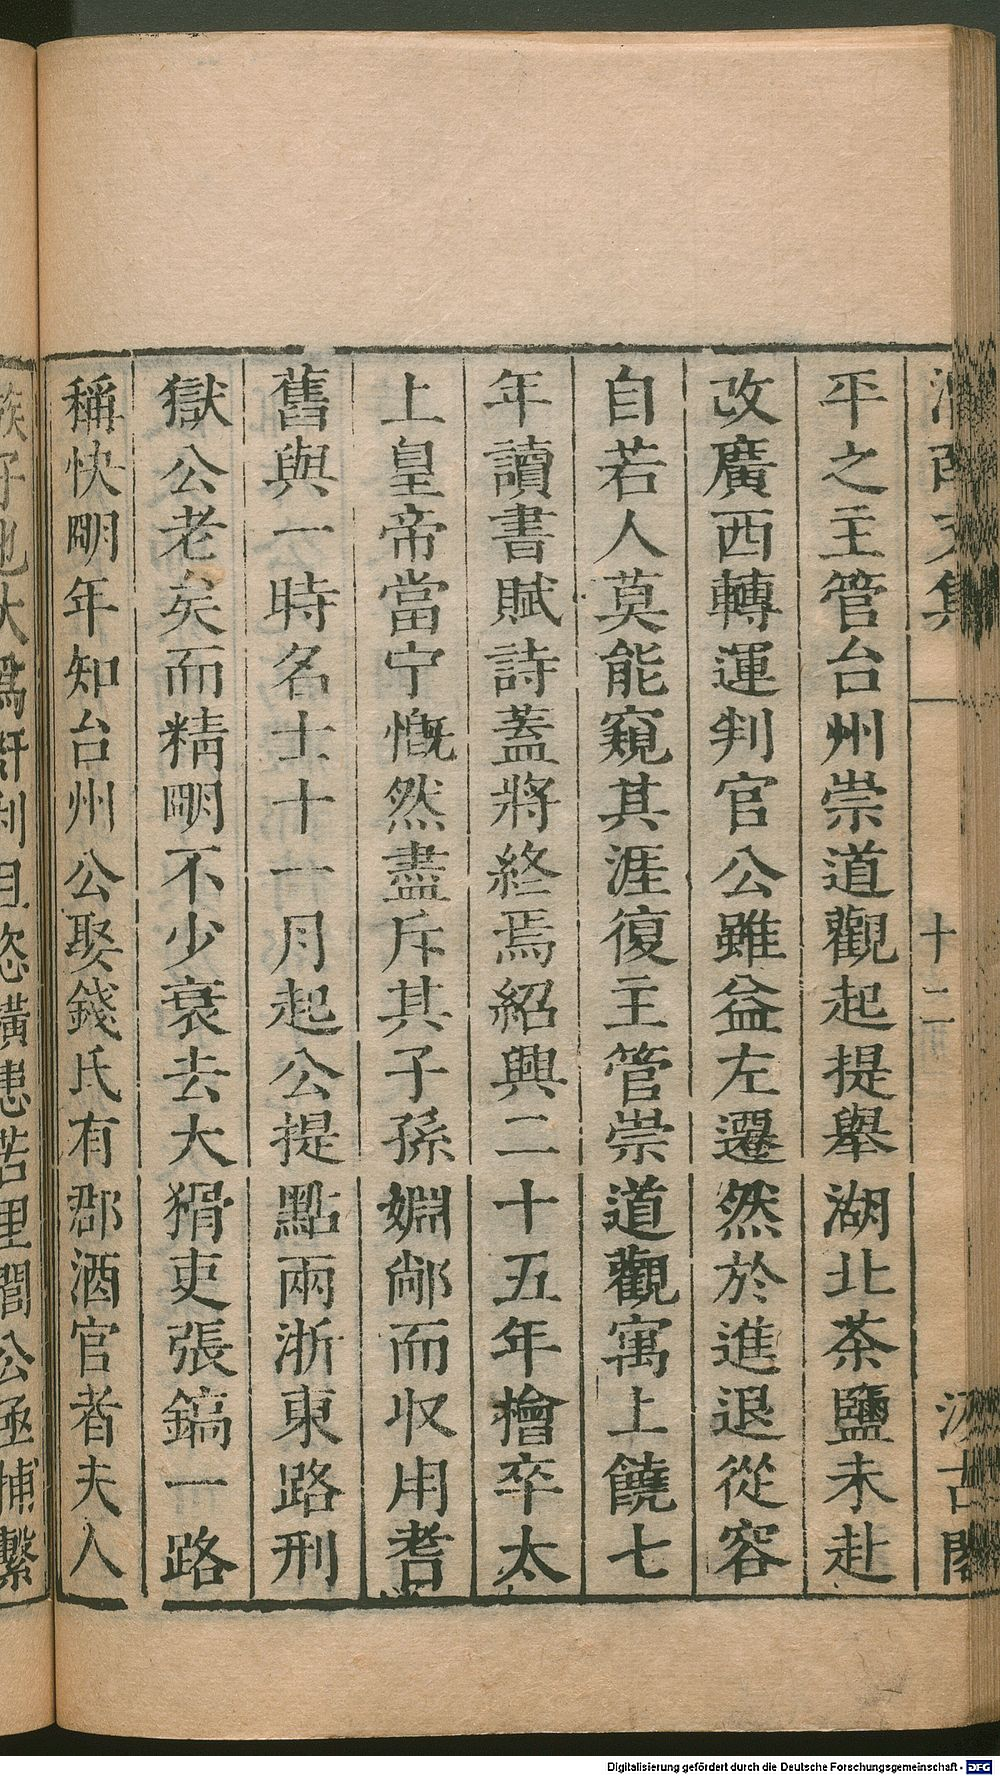 平之主管台州崇道觀起提舉湖北茶鹽未赴
改廣西轉運判官公雖益左遷然於進退從容
自若人莫能窺其涯復主管崇道觀寓上饒七
年讀書賦詩蓋將終焉紹興二十五年檜卒太
上皇帝當宁慨然盡斥其子孫婣鄃而收用耆
舊與一時名士十一月起公提點兩浙東路刑
獄公老矣而精明不少衰去大猾吏張鎬一路
稱快明年知台州公娶錢氏有郡酒官者夫人
文集
十二
汲古閣
族子也大為奸利且恣橫患苦里閭公亟捕繫
Digitalisierung gefördert durch die Deutsche Forschungsgemeinschaft - DFG